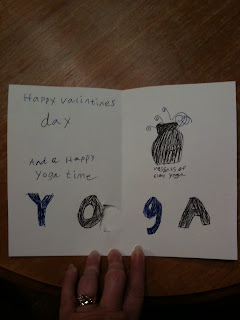 Happy valintines
day
And a Happy
yoga time
of
yoga
YOgA